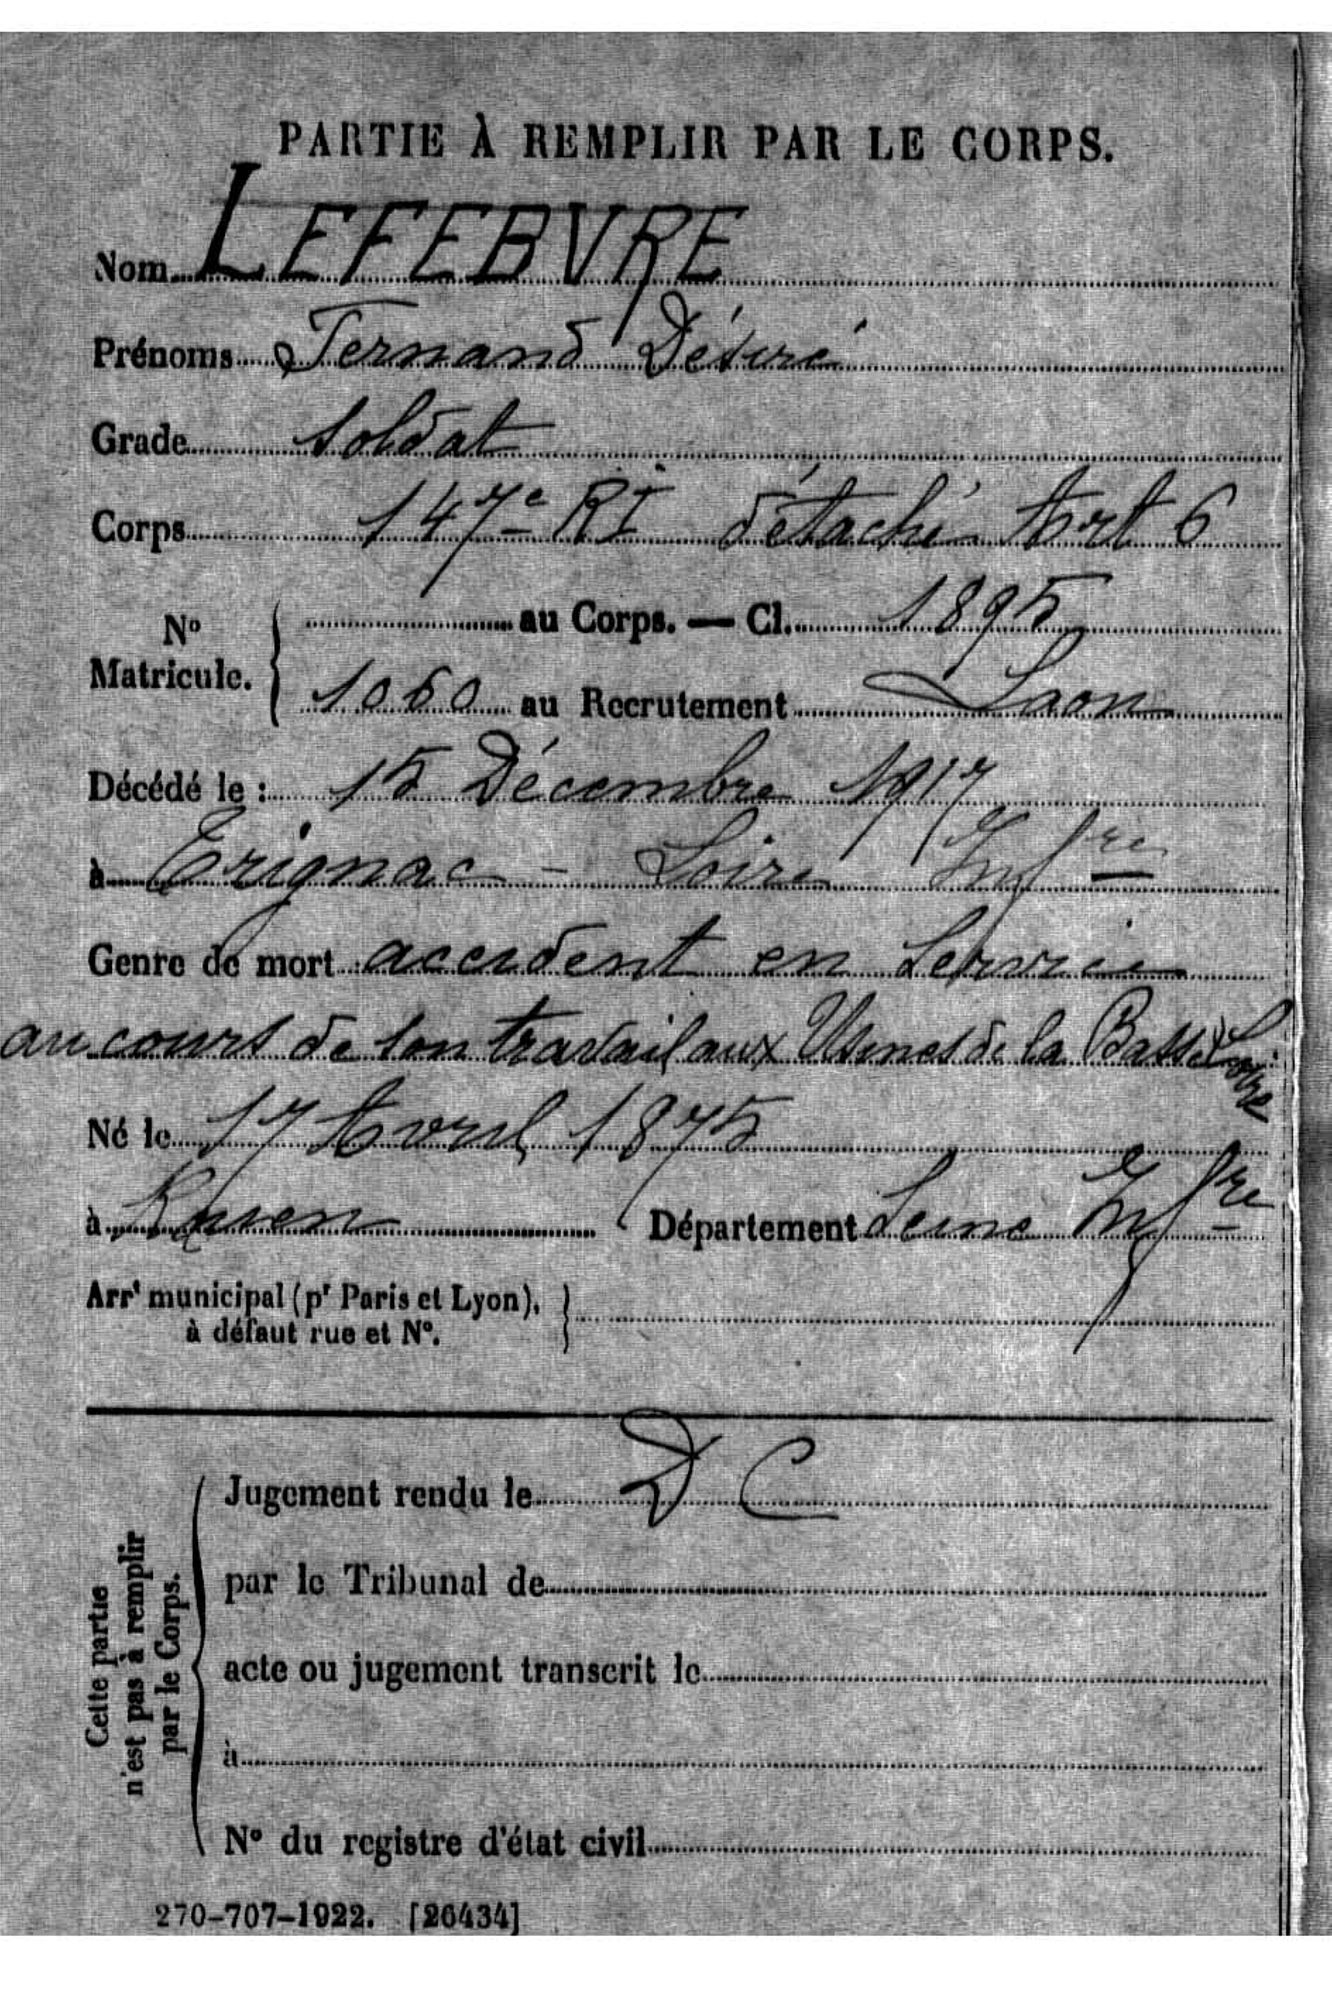 PARTIE À REMPLIR PAR LE CORPS.
Nom LEFEBVRE
Prénoms Fernand Désiré
Grade Soldat
Corps 147e RI détaché Art 6
N° Matricule. { au Corps. — Cl. 1895
1060 au Recrutement Laon
Décédé le : 15 Décembre 1917
à Trignac - Loire Infre
Genre de mort accident en Service
au cours de son travail aux Usines de la Basse Loire
Né le 17 Avril 1875
à Rouen Département Seine Infre
Arrt municipal (pr Paris et Lyon),
à défaut rue et N°.
Jugement rendu le D C
par le Tribunal de
acte ou jugement transcrit le
à
N° du registre d'état civil
Cette partie
n'est pas à remplir
par le Corps.
270-707-1922. [26434]